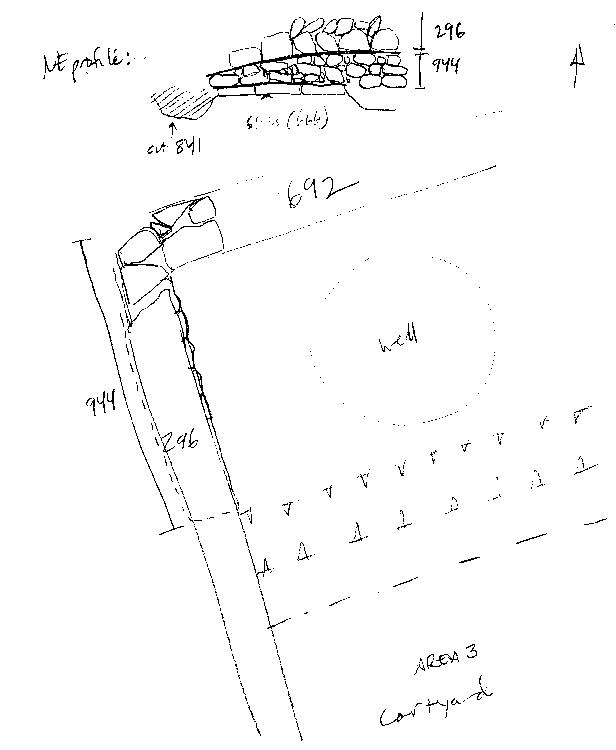 NE profile:
296
944
cut 841
692
well
944
296
AREA 3
Courtyard